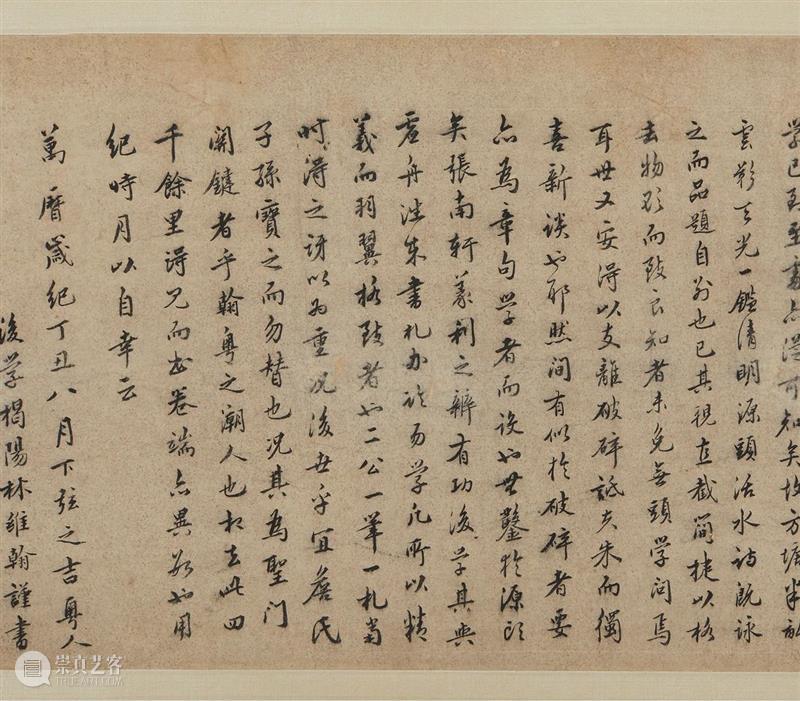 学已到至處亦從可知矣故方塘半畝
雲影天光一鑑清明源頭活水詩既詠
之而品題自别也已其視直截簡捷以格
去物欲而致良知者未免無頭学问焉
耳世又安得以支離破碎詆夫朱而獨
喜新談也耶然间有似於破碎者要
亦為章句学者而设也世鑿於源頭
矣張南軒義利之辨有功後学其與
虚舟注朱書札亦於易学凡所以精
義而羽翼格致者也二公一筆一札當
时得之讶以为重况後世乎宜詹氏
子孫寶之而勿替也况其為聖门
関鍵者乎翰粤之潮人也相去此四
千餘里得兄而書卷端亦異数也用
紀時月以自幸云
萬曆嵗紀丁丑八月下弦之吉粤人
後学揭陽林維翰謹書
崇真艺客
TRUE-ART.COM